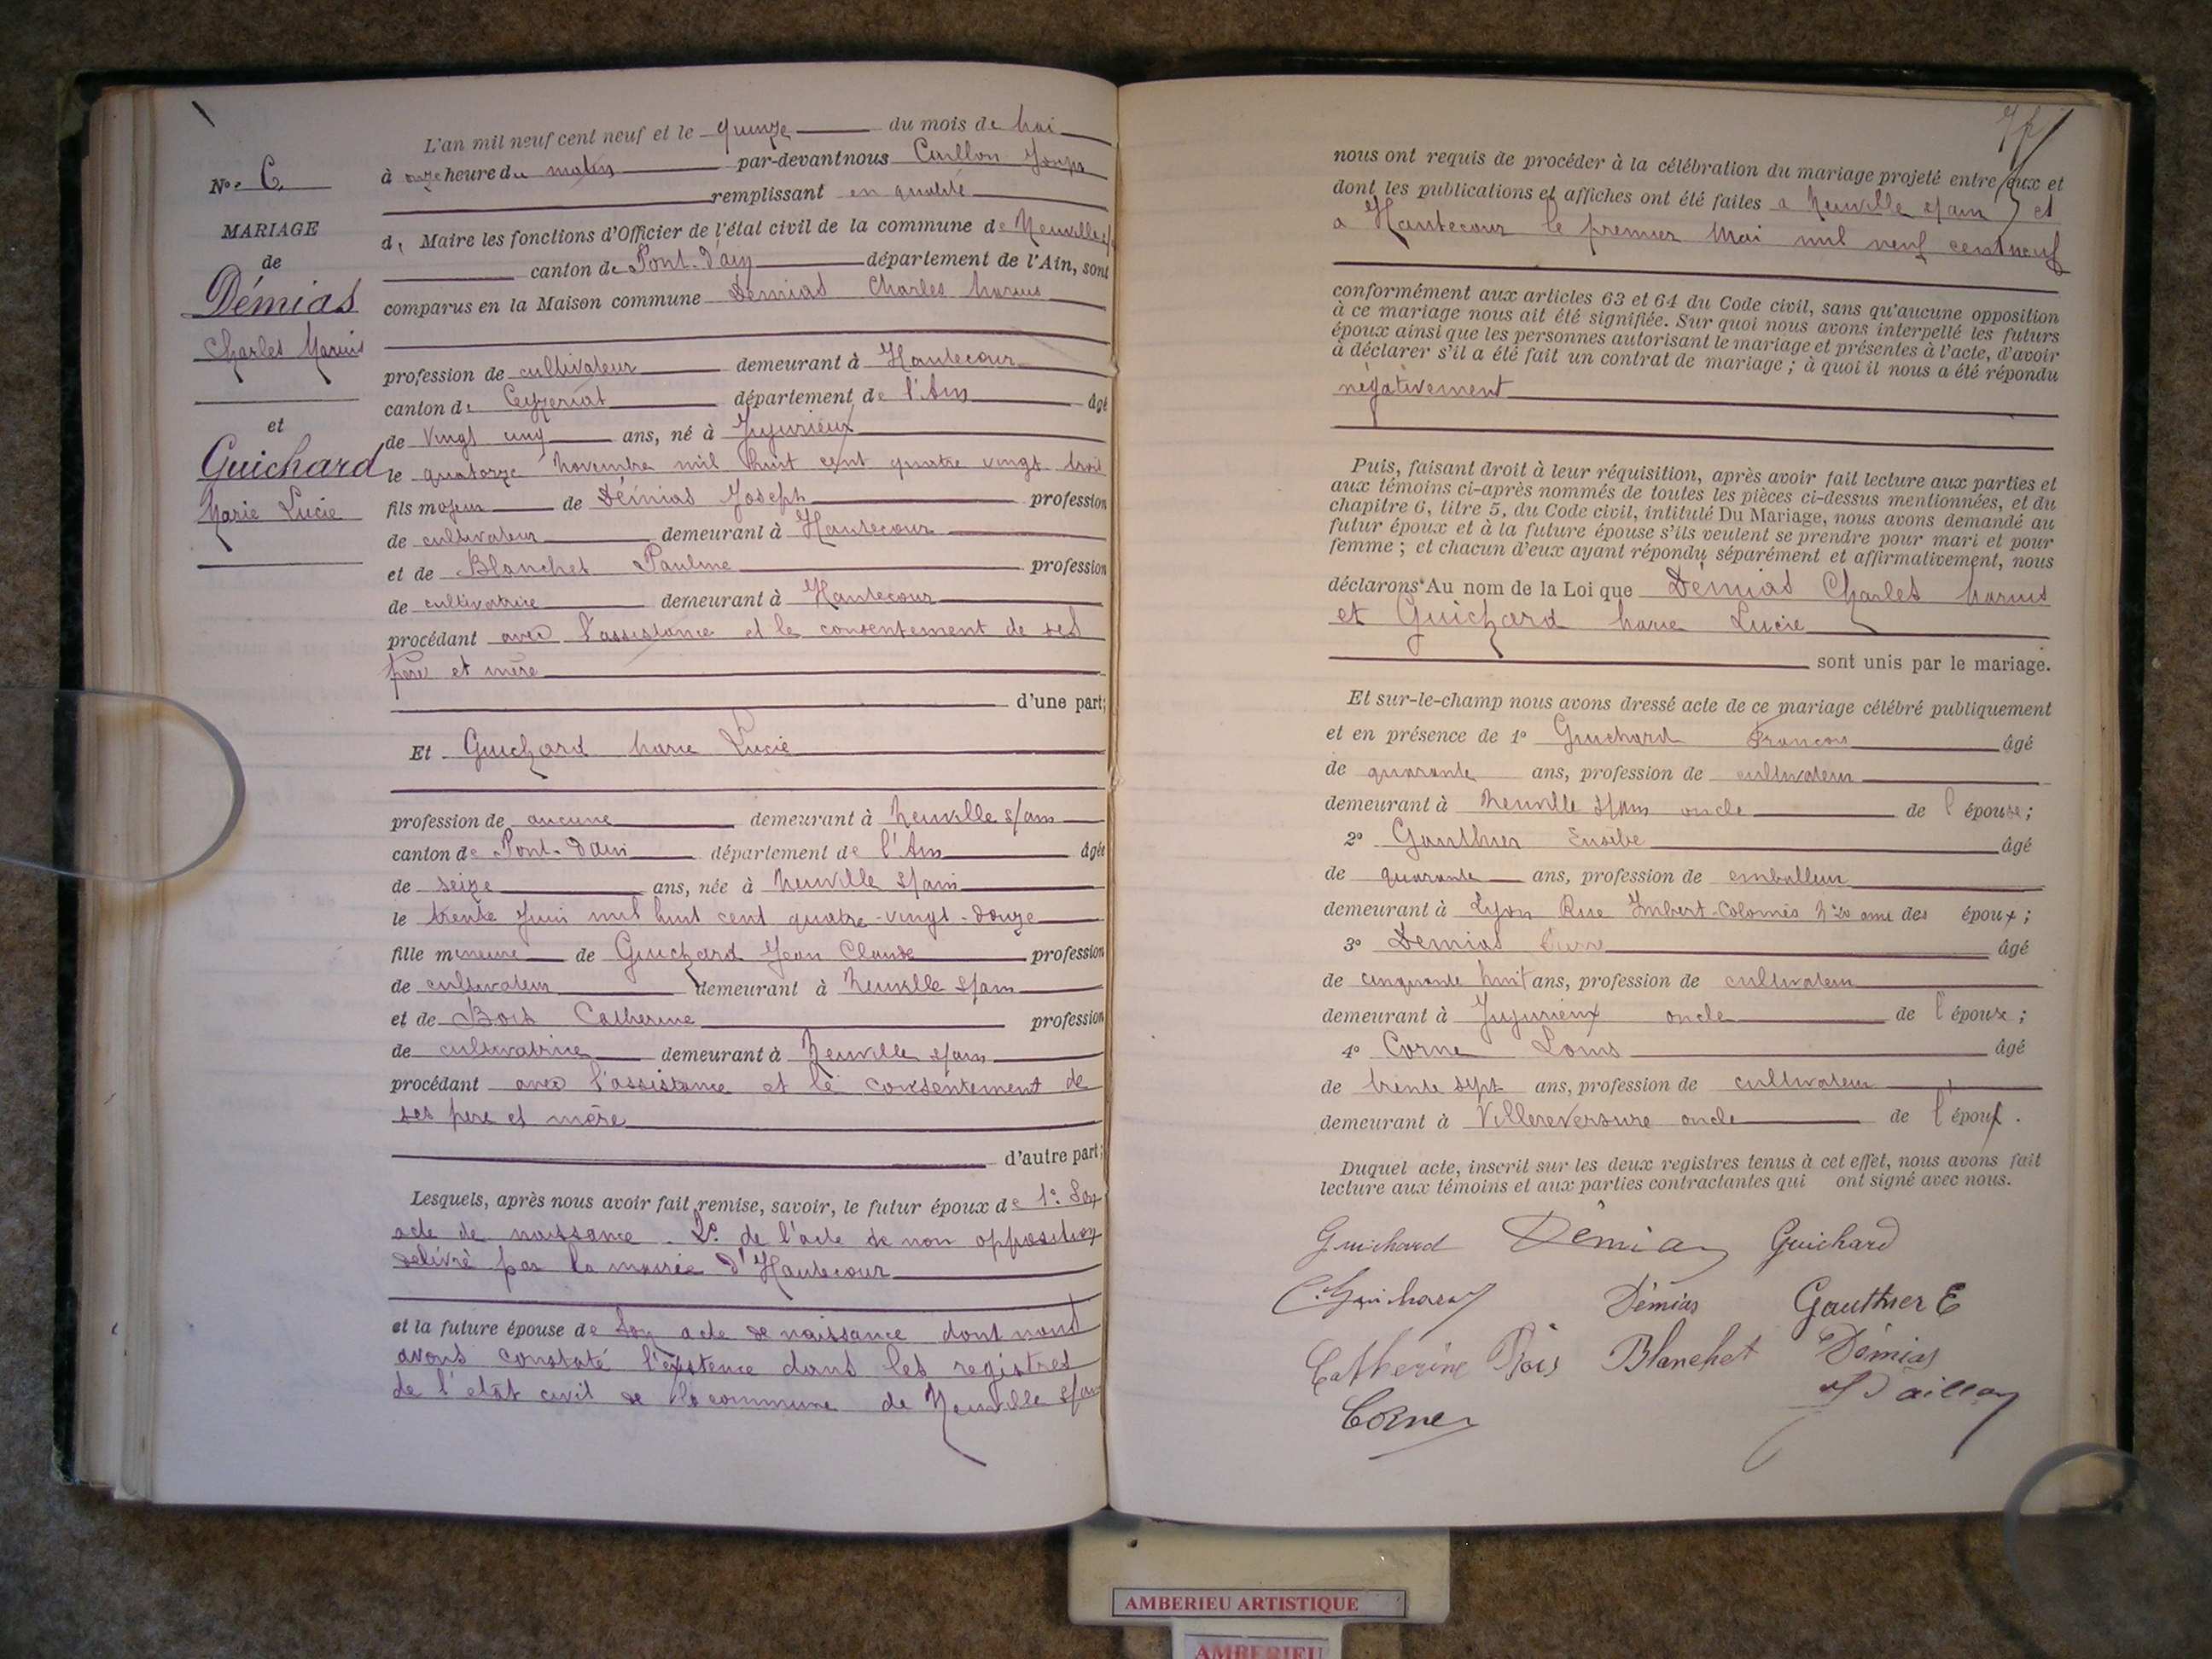 L'an mil neuf cent neuf et le quinze du mois de Mai
à onze heure du matin par-devant nous Caillon Joseph
remplissant en qualité
de Maire les fonctions d'Officier de l'état civil de la commune de Neuville s/
canton de Pont-d'ain département de l'Ain, sont
comparus en la Maison commune Démias Charles Marius
profession de cultivateur demeurant à Hautecour
canton de Ceyzeriat département de l'Ain âgé
de vingt cinq ans, né à Jujurieux
le quatorze Novembre mil huit cent quatre vingt trois
fils majeur de Démias Joseph profession
de cultivateur demeurant à Hautecour
et de Blanchet Pauline profession
de cultivatrice demeurant à Hautecour
procédant avec l'assistance et le consentement de ses
père et mère
d'une part;
Et Guichard Marie Lucie
profession de aucune demeurant à Neuville s/ain
canton de Pont-d'ain département de l'Ain âgée
de seize ans, née à Neuville s/ain
le trente Juin mil huit cent quatre-vingt-douze
fille mineure de Guichard Jean Claude profession
de cultivateur demeurant à Neuville s/ain
et de Bois Catherine profession
de cultivatrice demeurant à Neuville s/ain
procédant avec l'assistance et le consentement de
ses père et mère
d'autre part;
Lesquels, après nous avoir fait remise, savoir, le futur époux de 1º Son
acte de naissance. 2º de l'acte de non opposition
delivré par la mairie d'Hautecour
et la future épouse de Son acte de naissance dont nous
avons constaté l'existence dans les registres
de l'etat civil de la commune de Neuville s/ain
Nº 6
MARIAGE
de
Démias
Charles Marius
et
Guichard
Marie Lucie
nous ont requis de procéder à la célébration du mariage projeté entre eux et
dont les publications et affiches ont été faites a Neuville s/ain et
a Hautecour le premier Mai mil neuf cent neuf
conformément aux articles 63 et 64 du Code civil, sans qu'aucune opposition
à ce mariage nous ait été signifiée. Sur quoi nous avons interpellé les futurs
époux ainsi que les personnes autorisant le mariage et présentes à l'acte, d'avoir
à déclarer s'il a été fait un contrat de mariage; à quoi il nous a été répondu
négativement
Puis, faisant droit à leur réquisition, après avoir fait lecture aux parties et
aux témoins ci-après nommés de toutes les pièces ci-dessus mentionnées, et du
chapitre 6, titre 5, du Code civil, intitulé Du Mariage, nous avons demandé au
futur époux et à la future épouse s'ils veulent se prendre pour mari et pour
femme; et chacun d'eux ayant répondu séparément et affirmativement, nous
déclarons Au nom de la Loi que Démias Charles Marius
et Guichard Marie Lucie
sont unis par le mariage.
Et sur-le-champ nous avons dressé acte de ce mariage célébré publiquement
et en présence de 1º Guichard François âgé
de quarante ans, profession de cultivateur
demeurant à Neuville s/ain oncle de l'épouse;
2º Gauthier Eusèbe âgé
de quarante ans, profession de emballeur
demeurant à Lyon Rue Imbert-Colomès ami des époux;
3º Démias Pierre âgé
de cinquante huit ans, profession de cultivateur
demeurant à Jujurieux oncle de l'époux;
4º Corne Louis âgé
de trente sept ans, profession de cultivateur
demeurant à Villereversure oncle de l'époux.
Duquel acte, inscrit sur les deux registres tenus à cet effet, nous avons fait
lecture aux témoins et aux parties contractantes qui ont signé avec nous.
Guichard Démias Guichard
C. Guichard Démias Gauthier E
Catherine Bois Blanchet Démias
Corne Caillon
AMBERIEU ARTISTIQUE
AMBERIEU